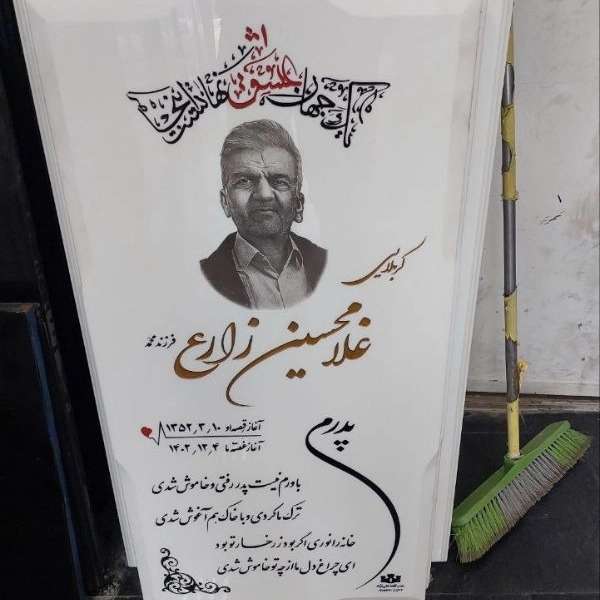 یک جهان عشق نهان است اینجا
کربلایی
غلامحسین زارع
فرزند محمد
پدرم
آغاز قصه او ۱۳۵۲٫۳٫۱۰
آغاز غصه ما ۱۴۰۲٫۱۲٫۴
باورم نیست پدر رفتی و خاموش شدی
ترک ما کردی و با خاک هم آغوش شدی
خانه را نوری اگر بود ز رخسار تو بود
ای چراغ دل ما از چه تو خاموش شدی